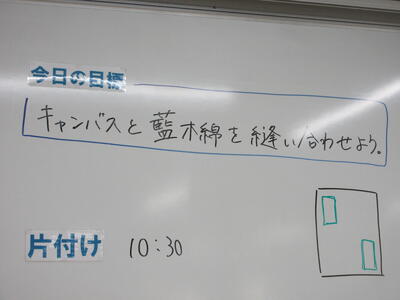 今日の目標
キャンバスと藍木綿を縫い合わせよう。
片付け 10:30